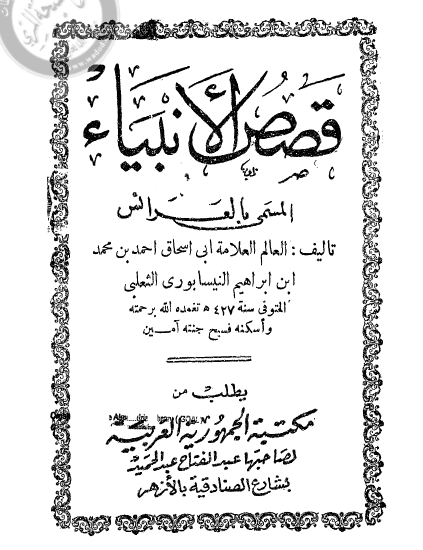 قصص الأنبياء
المسمى بالعرائس
تاليف : العالم العلامة ابى اسحاق احمد بن محمد
ابن ابراهيم النيسابورى الثعلبى
المتوفى سنة ٤٢٧ ه تغمده الله برحمته
وأسكنه فسيح جنته آمـين
يطلب من
مكتبة الجمهورية العربية
لصاحبها عبد الفتاح عبد الحميد
بشارع الصنادقية بالأزهر